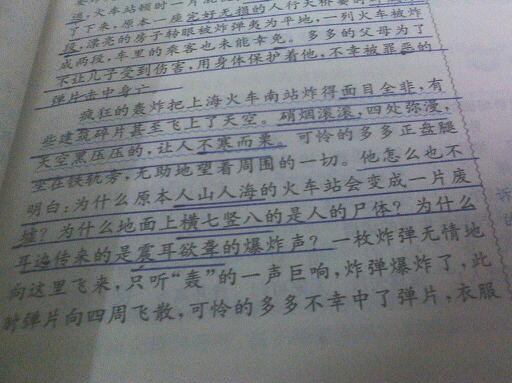 逃，火车站顿时一片混
了下来，原本一座完好无损的人行天桥
段，漂亮的房子转眼被炸弹夷为平地，一列火车被炸
成两段，车里的乘客也未能幸免。多多的父母为了
不让儿子受到伤害，用身体保护着他，不幸被罪恶的
弹片击中身亡
疯狂的轰炸把上海火车南站炸得面目全非，有
些建筑碎片甚至飞上了天空。硝烟滚滚，四处弥漫，
天空黑压压的，让人不寒而栗。可怜的多多正盘腿
坐在铁轨旁，无助地望着周围的一切。他怎么也不
明白：为什么原本人山人海的火车站会变成一片废
墟？为什么地面上横七竖八的是人的尸体？为什么
耳边传来的是震耳欲聋的爆炸声？一枚炸弹无情地
向这里飞来，只听“轰”的一声巨响，炸弹爆炸了，此
时弹片向四周飞散，可怜的多多不幸中了弹片，衣服